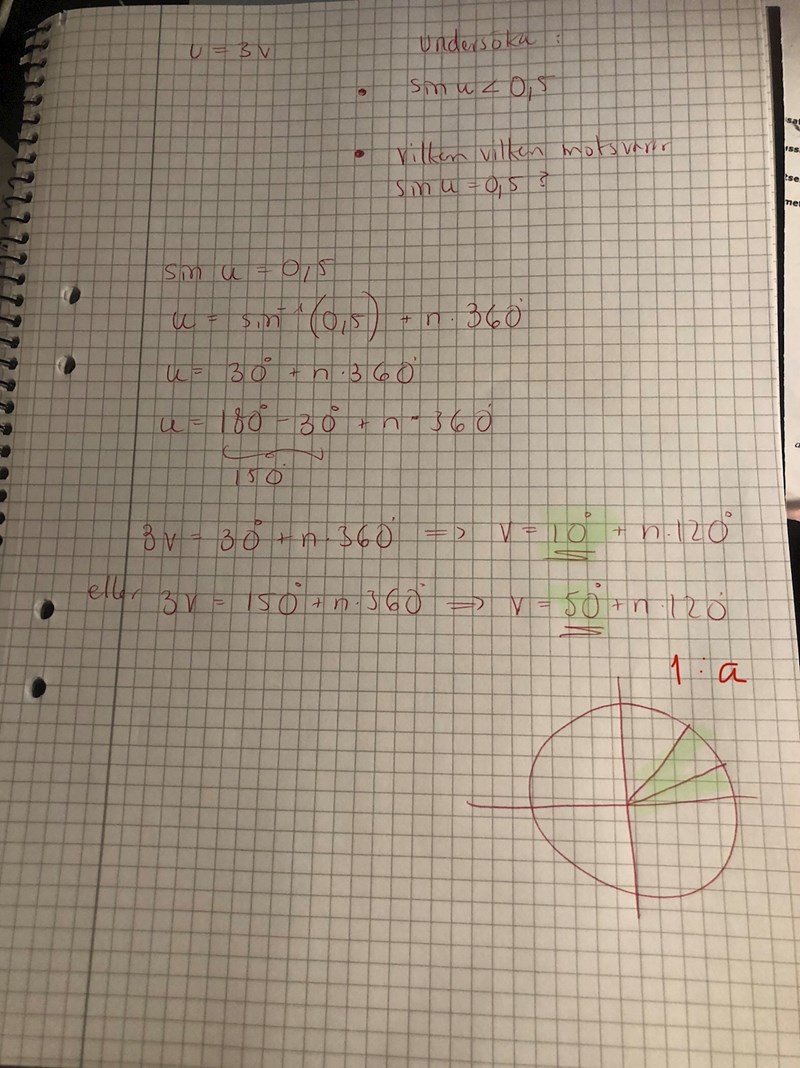 u = 3v
Undersöka :
• sin u < 0,5
• vilken vilken motsvarar
sin u = 0,5 ?
sin u = 0,5
u = sin⁻¹(0,5) + n·360°
u = 30° + n·360°
u = 180° - 30° + n·360°
150°
3v = 30° + n·360° => v = 10° + n·120°
eller 3v = 150° + n·360° => v = 50° + n·120°
1:a